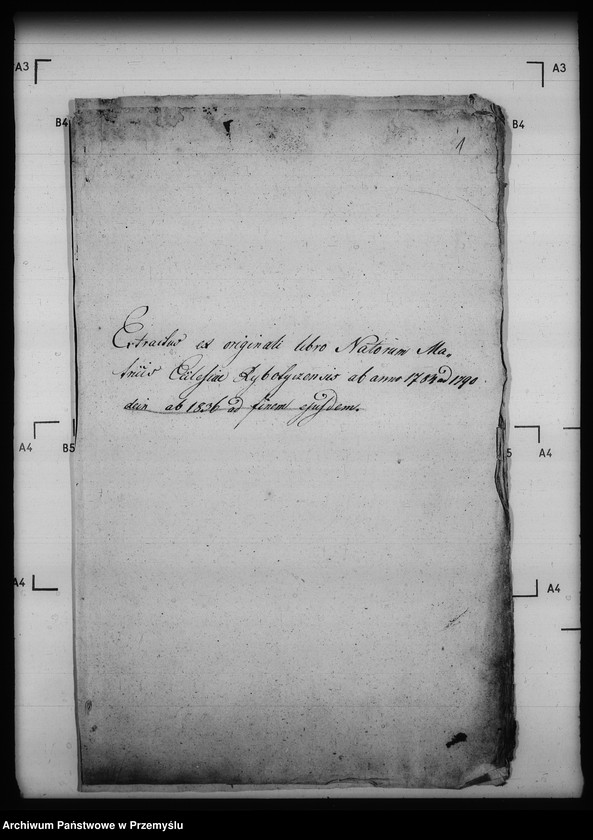 A3
A3
B4
B4
1
Extractus ex originali libro Natorum Ma-
tricis Eclesiae Rybotyczensis ab anno 1784 ad 1790
dein ab 1836 ad finem ejusdem.
A4
B5
5
A4
A4
A4
Archiwum Państwowe w Przemyślu